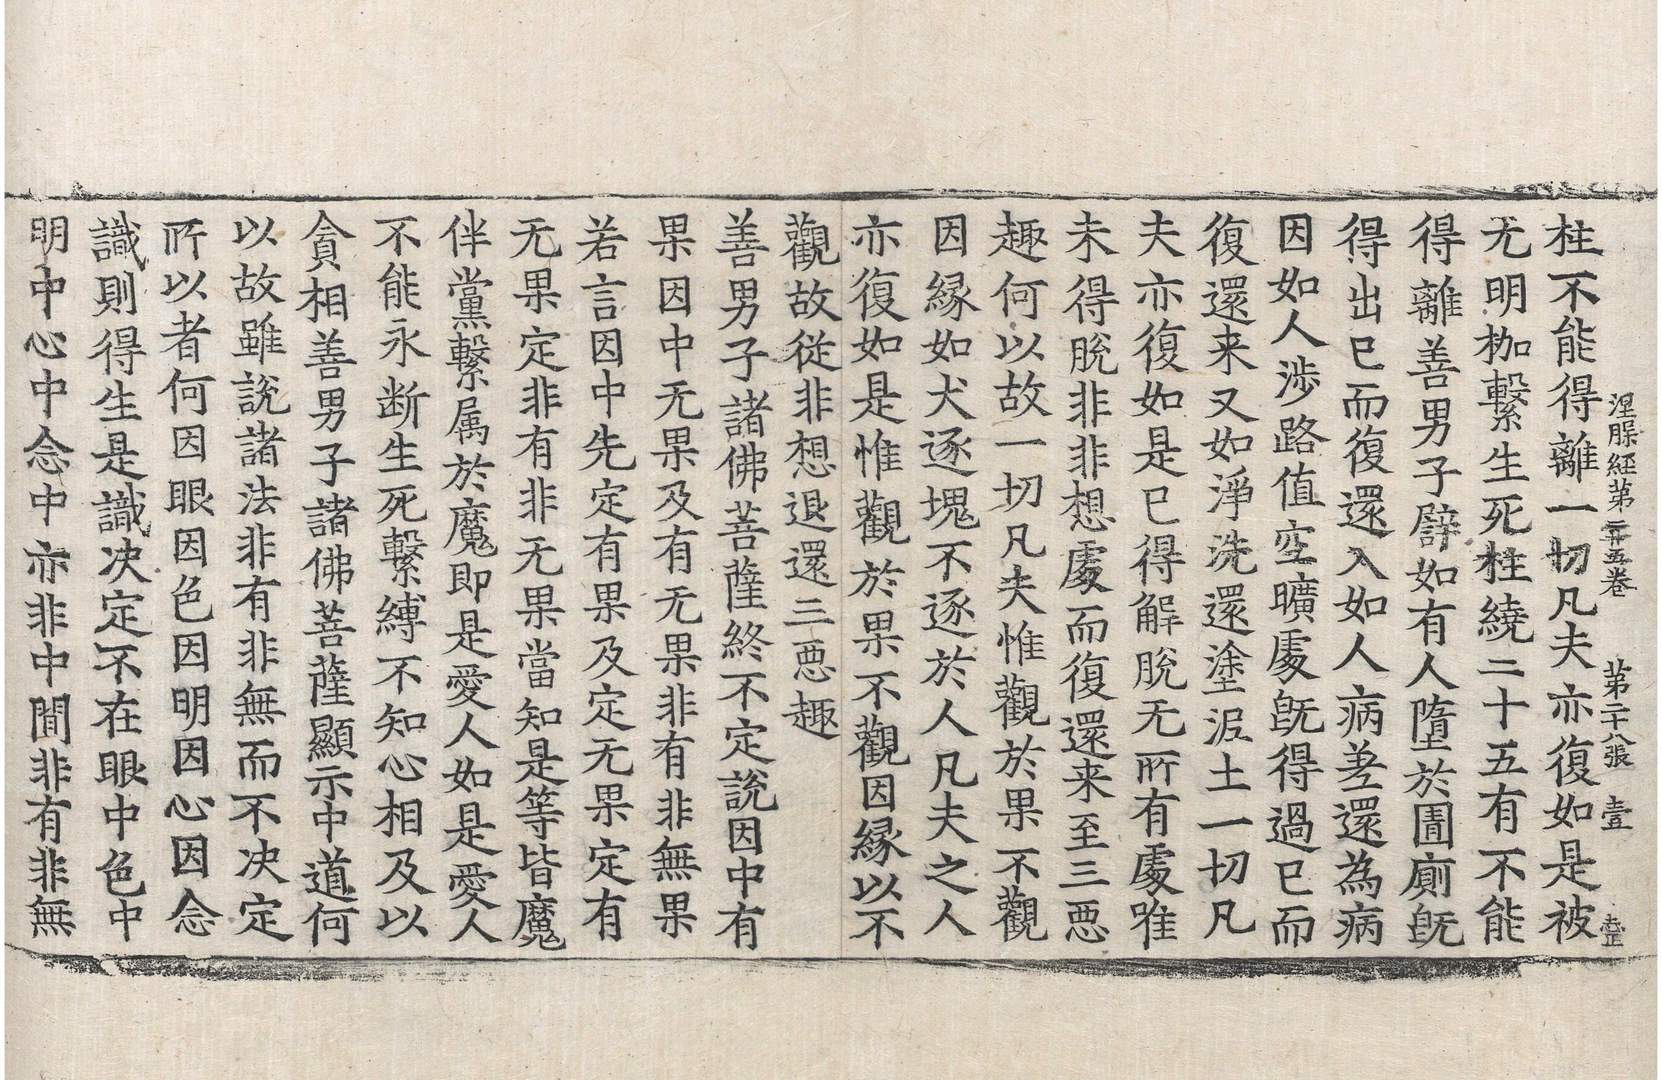 涅槃経第二十五卷 第二十八張 壹
柱不能得離一切凡夫亦復如是被
无明枷繫生死柱繞二十五有不能
得離善男子譬如有人墮於圊廁旣
得出已而復還入如人病差還為病
因如人渉路值空曠處旣得過已而
復還来又如淨洗還塗泥土一切凡
夫亦復如是已得解脫无所有處唯
未得脫非非想處而復還来至三惡
趣何以故一切凡夫惟觀於果不觀
因緣如犬逐塊不逐於人凡夫之人
亦復如是惟觀於果不觀因緣以不
觀故從非想退還三惡趣
善男子諸佛菩薩終不定說因中有
果因中无果及有无果非有非無果
若言因中先定有果及定无果定有
无果定非有非无果當知是等皆魔
伴黨繫属於魔即是愛人如是愛人
不能永断生死繫縛不知心相及以
貪相善男子諸佛菩薩顯示中道何
以故雖說諸法非有非無而不决定
所以者何因眼因色因明因心因念
識則得生是識决定不在眼中色中
明中心中念中亦非中間非有非無